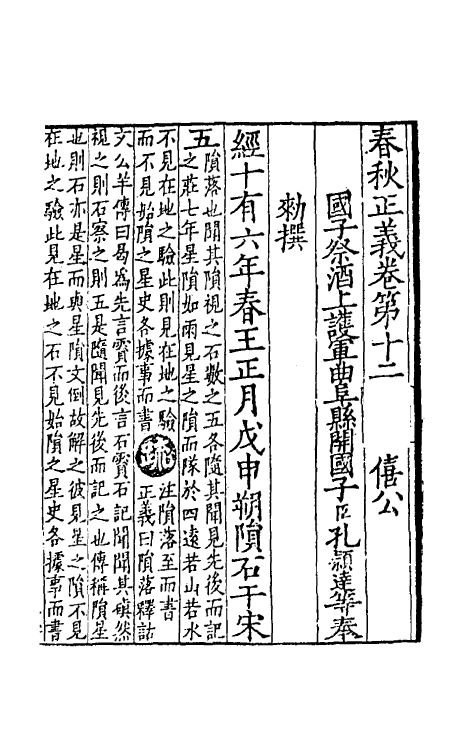 春秋正義卷第十二 僖公
國子祭酒上護軍曲阜縣開國子臣孔穎達等奉
勑撰
經十有六年春王正月戊申朔隕石于宋
五
隕落也聞其隕視之石數之五各隨其聞見先後而記
之莊七年星隕如雨見星之隕而隊於四遠若山若水
不見在地之驗此則見在地之驗
而不見始隕之星史各據事而書
疏
注隕落至而書
正義曰隕落釋詁
文公羊傳曰曷爲先言霣而後言石霣石記聞聞其磌然
視之則石察之則五是隨聞見先後而記之也傳稱隕星
也則石亦是星而與星隕文倒故解之彼見星之隕不見
在地之驗此見在地之石不見始隕之星史各據事而書